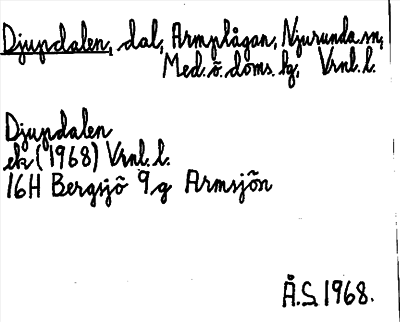 Djupdalen, dal, Armplågan, Njurunda sn,
Med. ö. doms. hg, Vrnl. l.
Djupdalen
ek (1968) Vrnl. l.
16H Bergsjö 9g Armsjön
Å.S. 1968.